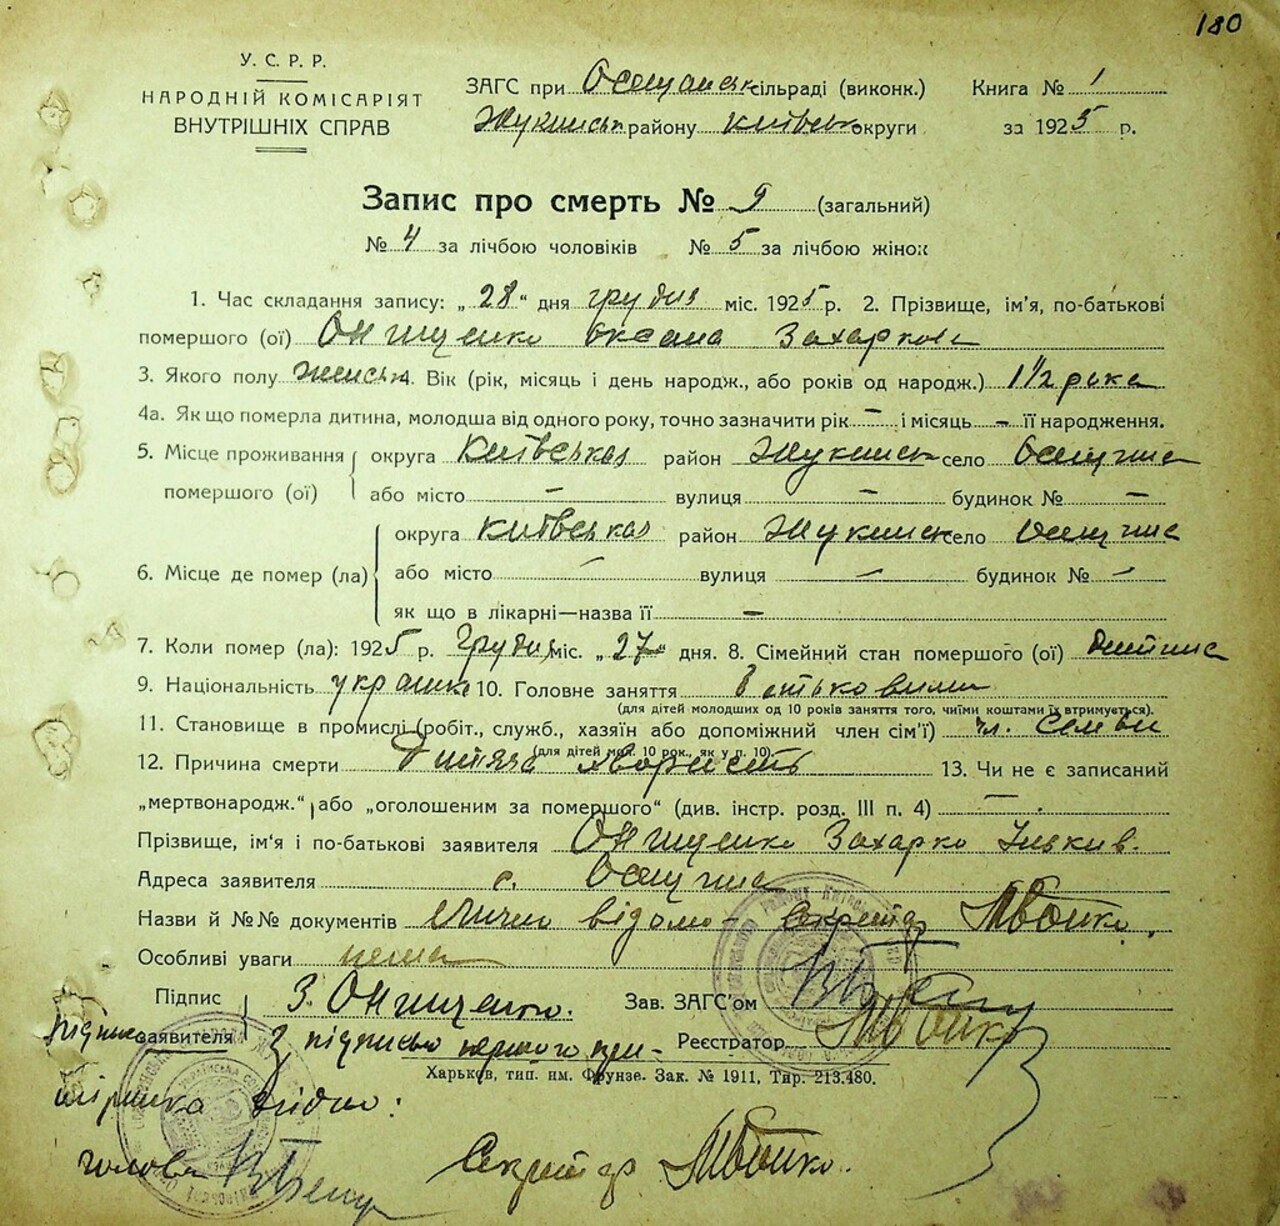 180
У. С. Р. Р.
НАРОДНІЙ КОМІСАРІЯТ
ВНУТРІШНІХ СПРАВ
ЗАГС при Осещанськ сільраді (виконк.)
Жукинськ району київськ округи
Книга № 1
за 1925 р.
Запис про смерть № 9 (загальний)
№ 4 за лічбою чоловіків № 5 за лічбою жінок
1. Час складання запису: „28“ дня грудня міс. 1925 р. 2. Прізвище, ім'я, по-батькові
помершого (ої) Онищенко Оксана Захаркова
3. Якого полу женськ 4. Вік (рік, місяць і день народж., або років од народж.) 1 1/2 рока
4а. Як що померла дитина, молодша від одного року, точно зазначити рік – і місяць – її народження.
5. Місце проживання помершого (ої) округа Київськая район Жукинськ село Осещина
або місто – вулиця – будинок № –
6. Місце де помер (ла) округа Київськая район Жукинськ село Осещина
або місто – вулиця – будинок № –
як що в лікарні—назва її –
7. Коли помер (ла): 1925 р. Грудня міс. „27“ дня. 8. Сімейний стан помершого (ої) дитина
9. Національність україн 10. Головне заняття
(для дітей молодших од 10 років заняття того, чиїми коштами їх втримується).
11. Становище в промислі (робіт., служб., хазяїн або допоміжний член сім'ї) чл. семьи
(для дітей мол. 10 рок., як у п. 10)
12. Причина смерти Дитяча хвористь 13. Чи не є записаний
„мертвонародж.“ або „оголошеним за помершого“ (див. інстр. розд. III п. 4) –
Прізвище, ім'я і по-батькові заявителя Онищенко Захарко
Адреса заявителя с. Осещина
Назви й №№ документів лично відомо Секретар МБойко.
Особливі уваги нема
Підпис заявителя З. Онищенко. Зав. ЗАГС'ом
Підпис з підписью
Реєстратор МБойко
Харьков, тип. им. Фрунзе. Зак. № 1911, Тир. 213.480.
згідно:
голова
Секретар МБойко.